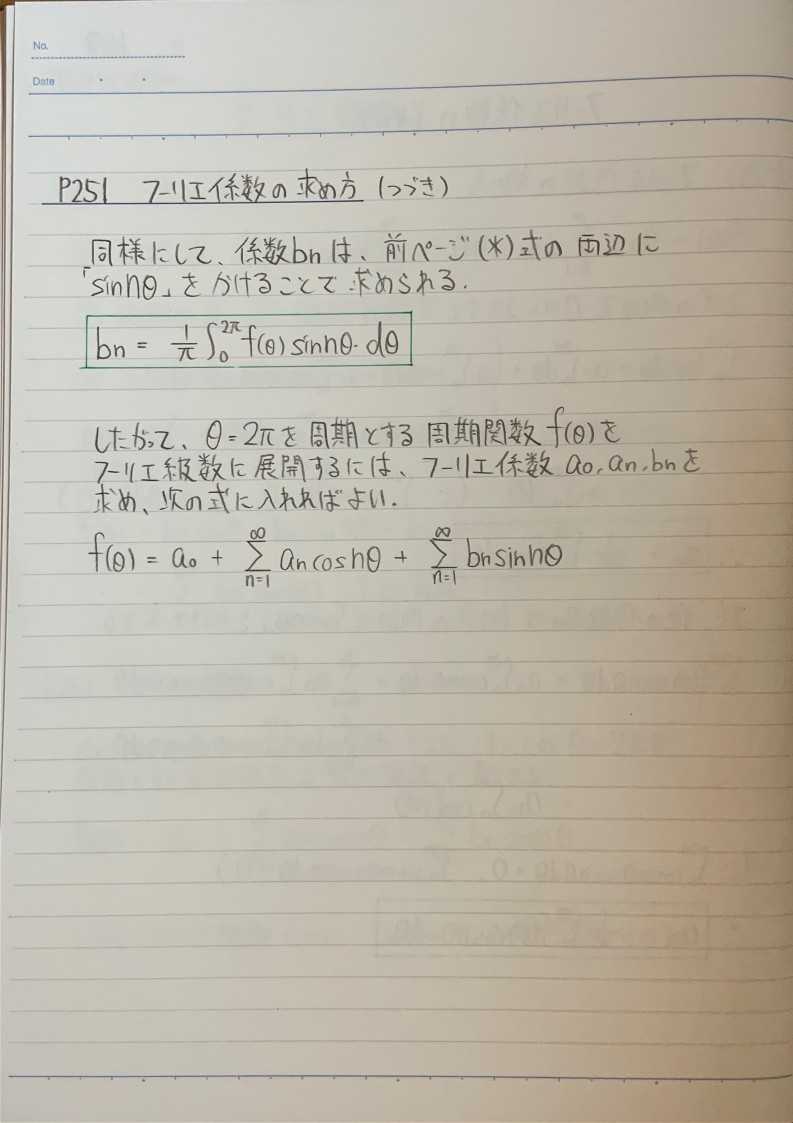 No.
Date
P251 フーリエ係数の求め方 (つづき)
同様にして、係数bnは、前ページ(*)式の両辺に
「sinnθ」をかけることで求められる.
bn = 1/π ∫₀^2π f(θ) sinnθ・dθ
したがって、θ=2πを周期とする周期関数f(θ)を
フーリエ級数に展開するには、フーリエ係数a₀, an, bnを
求め、次の式に入れればよい.
f(θ) = a₀ + ∑_{n=1}^{∞} an cosnθ + ∑_{n=1}^{∞} bn sinnθ